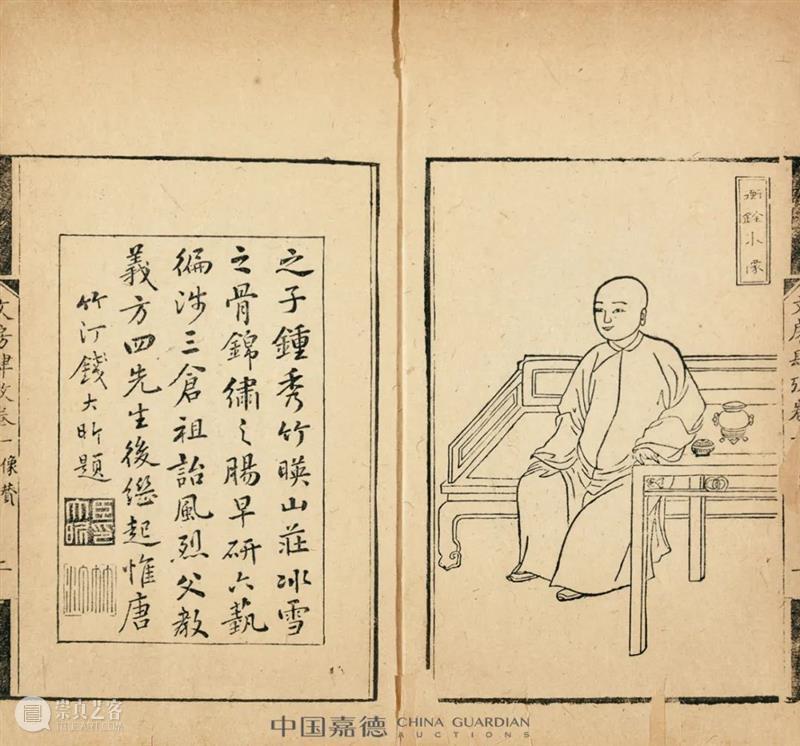 衡銓小像
文房肆攷卷一
之子鍾秀竹暎山莊冰雪
之骨錦繡之腸早研六藝
徧涉三倉祖詒風烈父教
義方四先生後繼起惟唐
竹汀錢大昕題
文房肆攷卷一 像贊
崇真艺客
中国嘉德 CHINA GUARDIAN
AUCTIONS